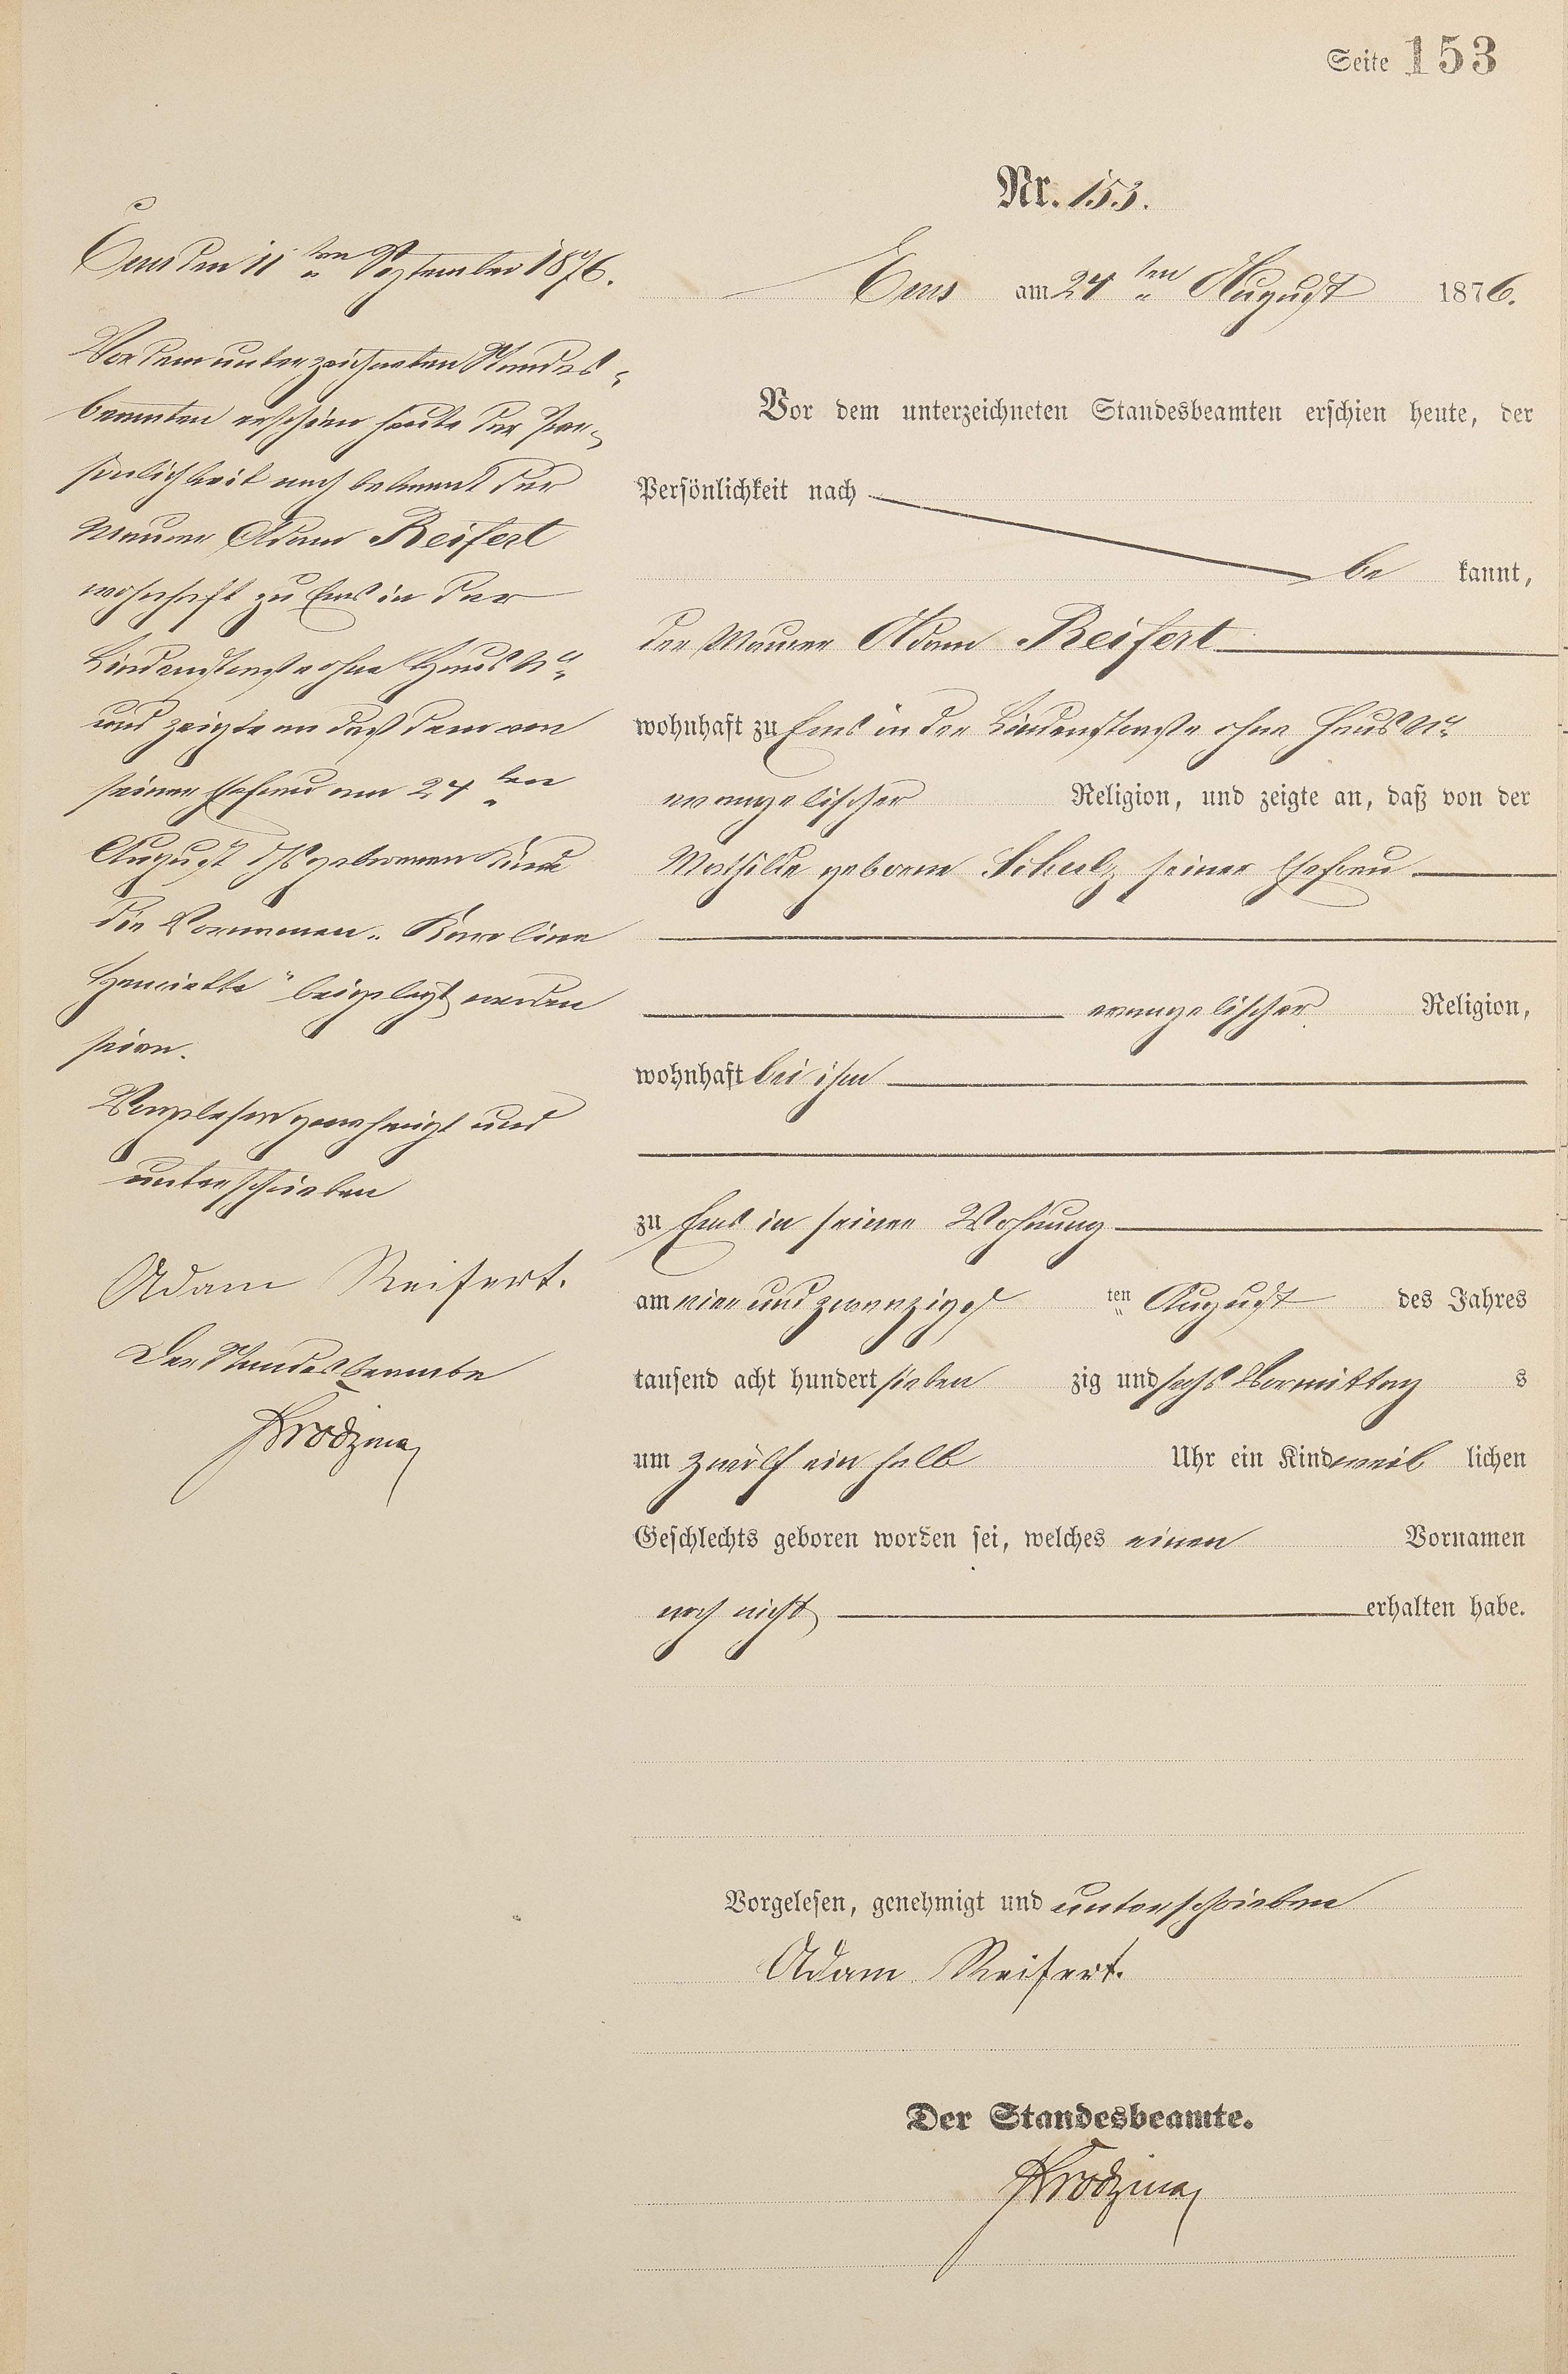 Seite 153
Nr. 153.
Ems den 11ten September 1876.
Vor dem unterzeichneten Standes-
beamten erschien heute der Per-
sönlichkeit nach bekannt der
Maurer Adam Reifert
wohnhaft zu Ems in der
Lindenstraße ohne Haus No
und zeigte an daß dem von
seiner Ehefrau am 24ten
August gebornen Kinde
die Vornamen „Karoline
Henriette" beigelegt worden
seien.
Vorgelesen genehmigt und
unterschrieben
Adam Reifert.
Der Standesbeamte
Ems am 24ten August 1876.
Vor dem unterzeichneten Standesbeamten erschien heute, der
Persönlichkeit nach
be kannt,
der Maurer Adam Reifert
wohnhaft zu Ems in der Lindenstraße ohne Haus No
evangelischer Religion, und zeigte an, daß von der
Mathilde geborene Schulz seiner Ehefrau
evangelischer Religion,
wohnhaft bei ihm
zu Ems in seiner Wohnung
am vier und zwanzigs ten August des Jahres
tausend acht hundert sieben zig und sechs Vormittag s
um zwölf ein halb Uhr ein Kind weib lichen
Geschlechts geboren worden sei, welches einen Vornamen
noch nicht erhalten habe.
Vorgelesen, genehmigt und unterschrieben
Adam Reifert.
Der Standesbeamte.